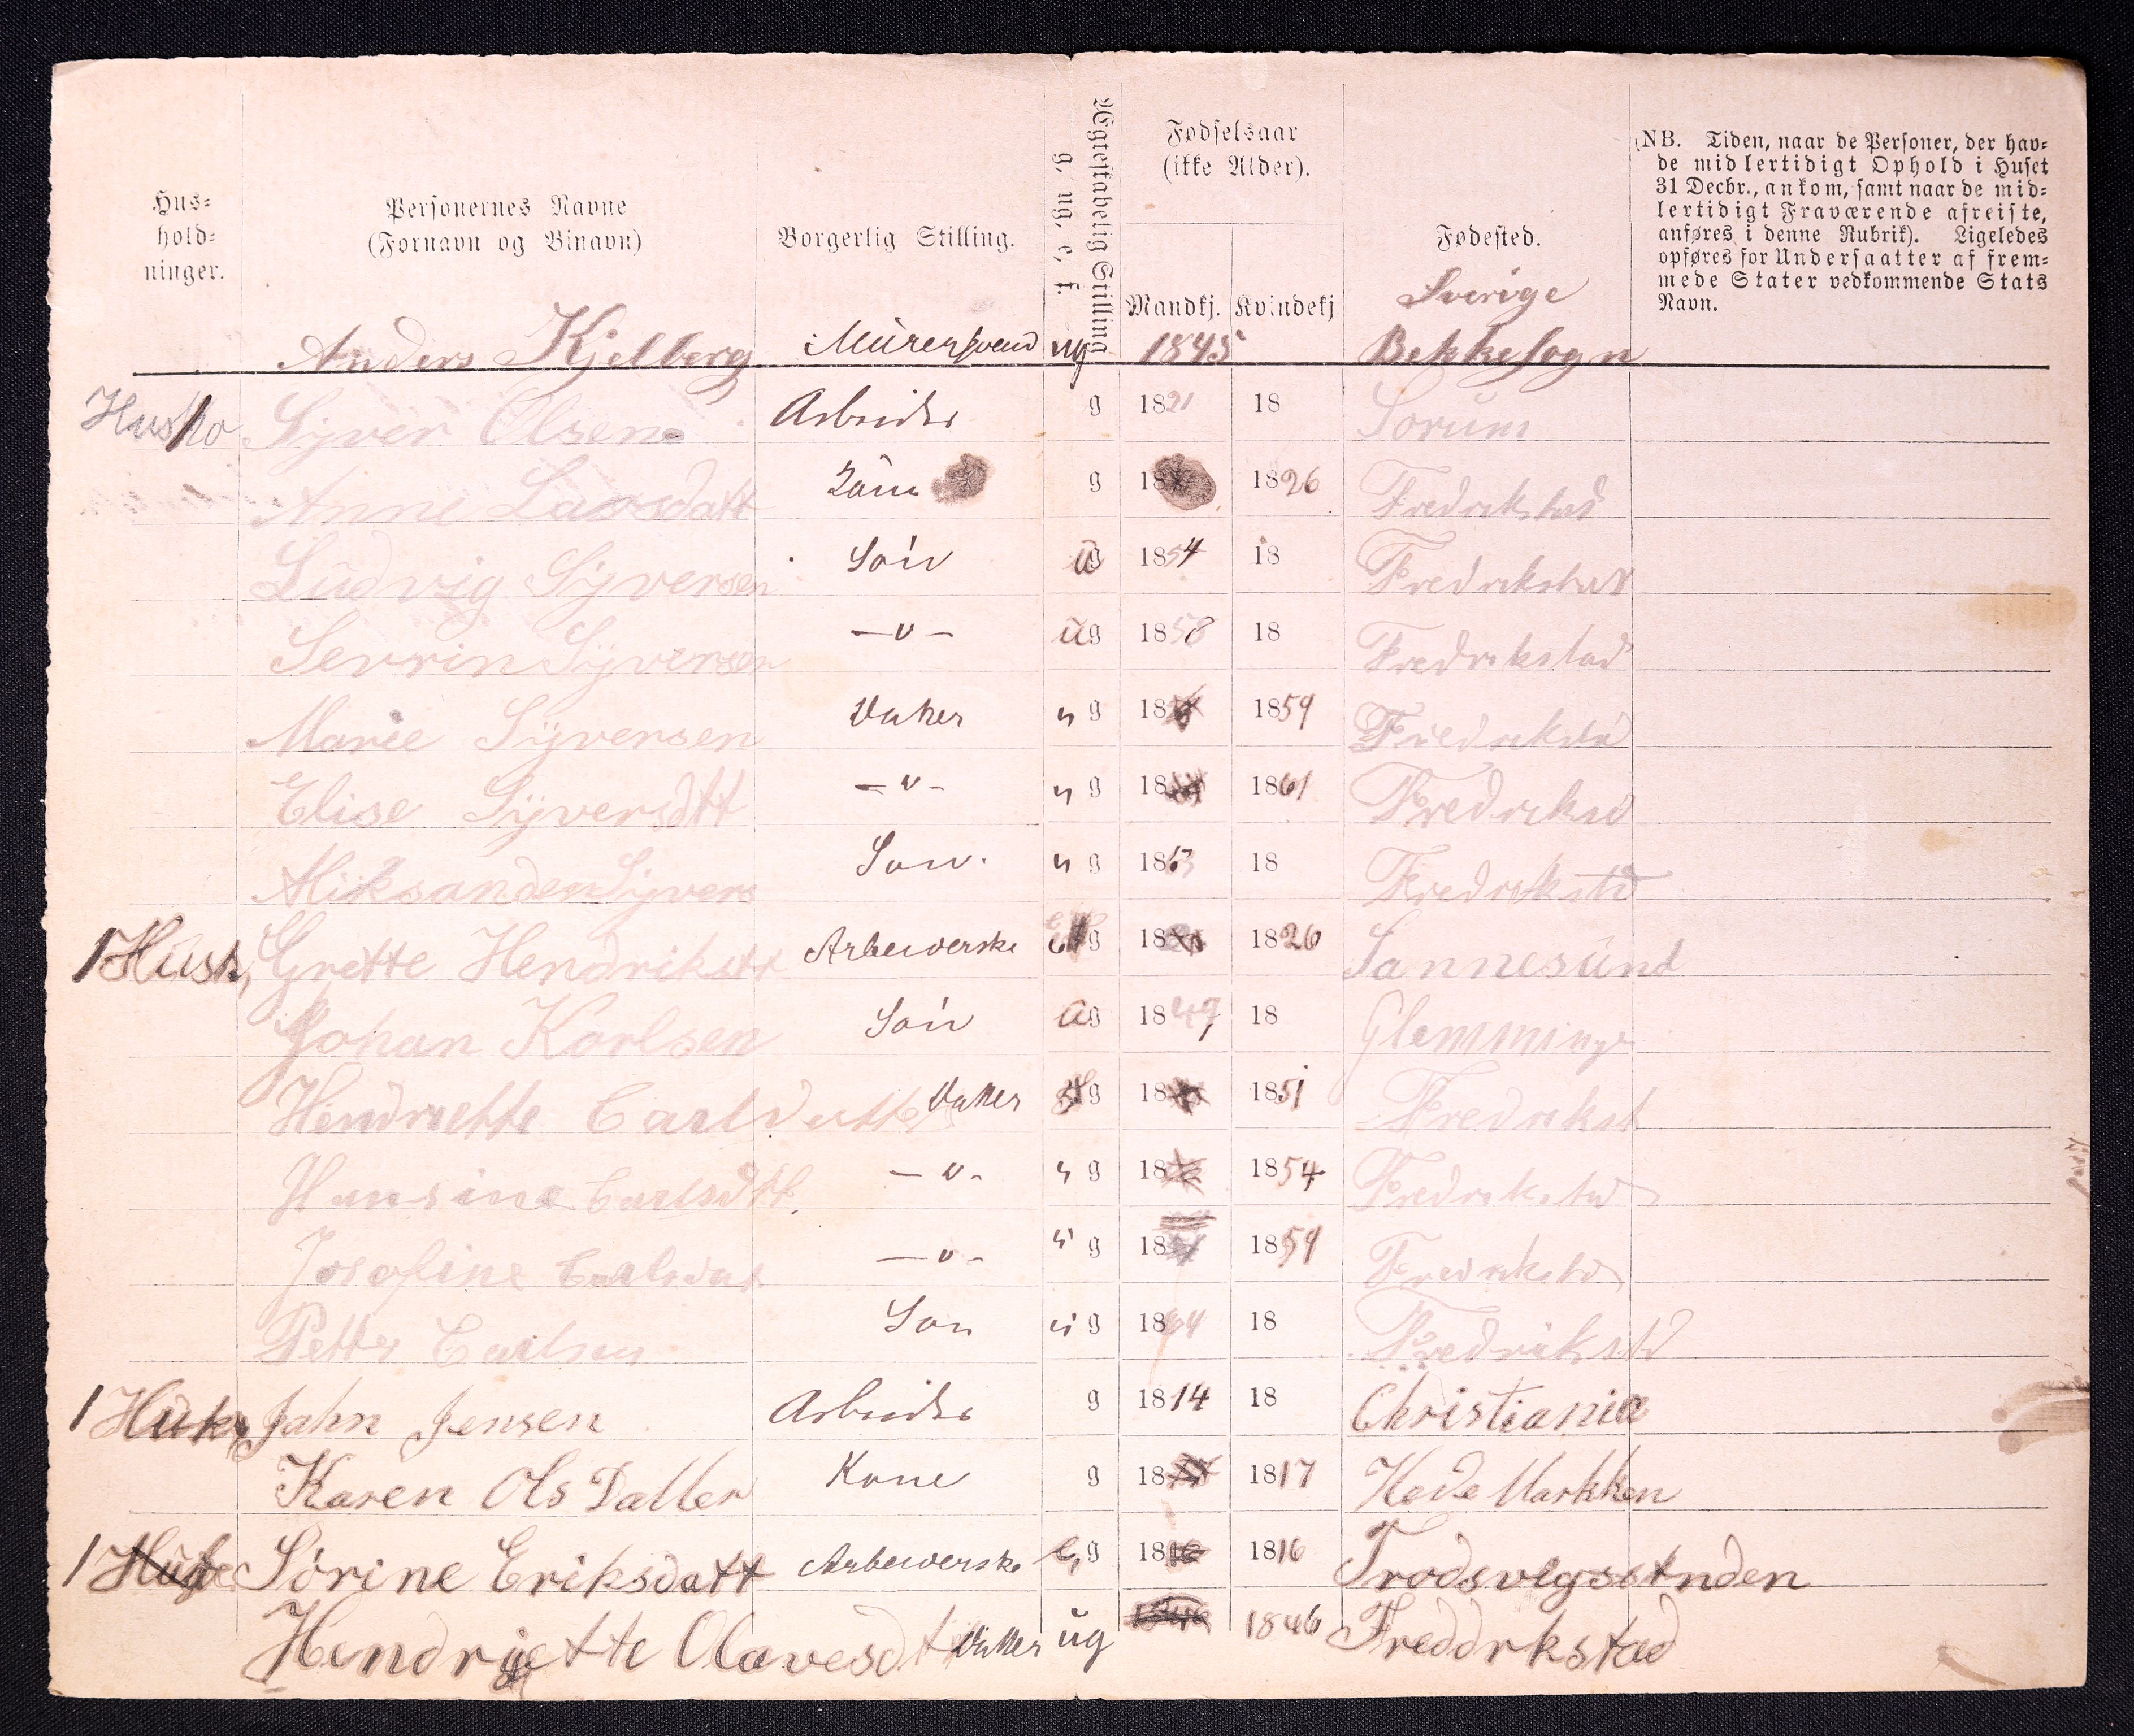 Hus=
hold=
ninger.
Personernes Navne
(Fornavn og Binavn)
Borgerlig Stilling.
Ægteskabelig Stilling
g. ug. e. f.
Fødselsaar
(ikke Alder).
Mandkj. Kvindekj
Fødested.
NB. Tiden, naar de Personer, der hav=
de midlertidigt Ophold i Huset
31 Decbr., ankom, samt naar de mid=
lertidigt Fraværende afreiste,
anføres i denne Rubrik). Ligeledes
opføres for Undersaatter af frem=
mede Stater vedkommende Stats
Navn.
Sverige
Anders Kjelberg Mürersvend ug 1845 Bekkesogn
Syver Olsen Arbeider g 1821 18 Sorüm
Anne Larsdatt g 18 1826 Fredrikstad
Ludvig Syversen Søn ug 1854 18 Fredrikstad
Sevrin Syversen —〃— ug 1858 18 Fredrikstad
Marie Syversen Datter ug 18 1859 Fredrikstad
Elise Syversdtt —〃— ug 18 1861 Fredriksd
Syvers Søn ug 186 18 Fredrikstd
1 Hush, Grette Hendriksdtt Arbeiderske g 18 1826 Sannesünd
Johan Karlsen Søn ug 1849 18 Glemminge
Hendriette Carlsdatter Datter g 18 1851 Fredrikst
Hansine Carlsdtt. —〃— ug 18 1854 Fredrikstad
Josefine Carlsdat —〃— ug 18 1859 Fredrikstd
Petter Carlsen Søn ug 1864 18 Fredrikstd
1 Jahn Jensen Arbeider g 1814 18 Christiania
Karen Ols Datter Kone g 18 1817 HedeMarkken
1 Sörine Eriksdatt Arbeiderske e, g 18 1816
Hendriette Olavesdt Datter ug 1846 Freddrkstad